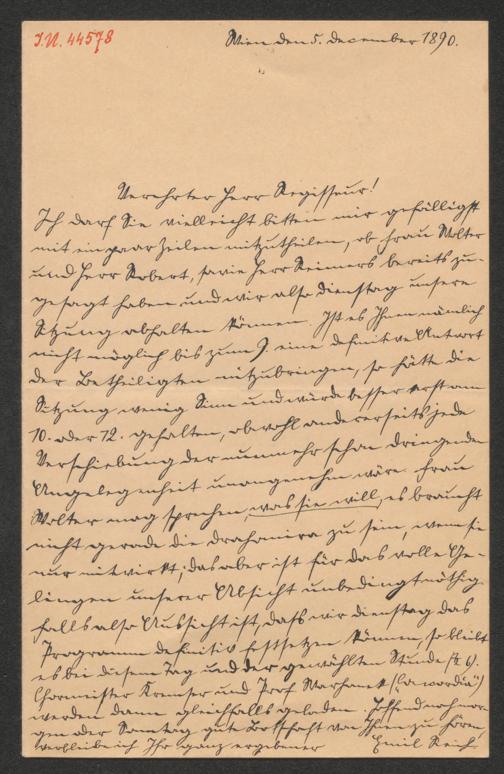 I.N. 44578
Wien den 5. December 1890.
Verehrter Herr Regisseur!
Ich darf Sie vielleicht bitten mir gefälligst
mit ein paar Zeilen mitzutheilen, ob Frau Wolter
und Herr Robert, sowie Herr Reimers bereits zu-
gesagt haben und wir also Dienstag unsere
Sitzung abhalten können. Ist es Ihnen nämlich
nicht möglich bis zum 9. eine definitive Antwort
der Betheiligten mitzubringen, so hätte die
Sitzung wenig Sinn und würde besser erst am
10. oder 12. gehalten, obwohl andererseits jede
Verschiebung der nunmehr schon dringenden
Angelegenheit unangenehm wäre. Frau
Wolter mag sprechen, was sie will, es braucht
nicht gerade die Drahomira zu sein, wenn sie
nur mitwirkt; das aber ist für das volle Ge-
lingen unserer Absicht unbedingt nöthig.
Falls also Aussicht ist, daß wir Dienstag das
Programm definitiv festsetzen können, so bleibt
es bei diesem Tag und der gewählten Stunde (½ 6).
Chormeister Kremser und Prof
werden dann gleichfalls geladen. Hoffend noch mor-
gen oder Sonntag gute Botschaft von Ihnen zu hören,
verbleibe ich Ihr ganz ergebener Emil Reich